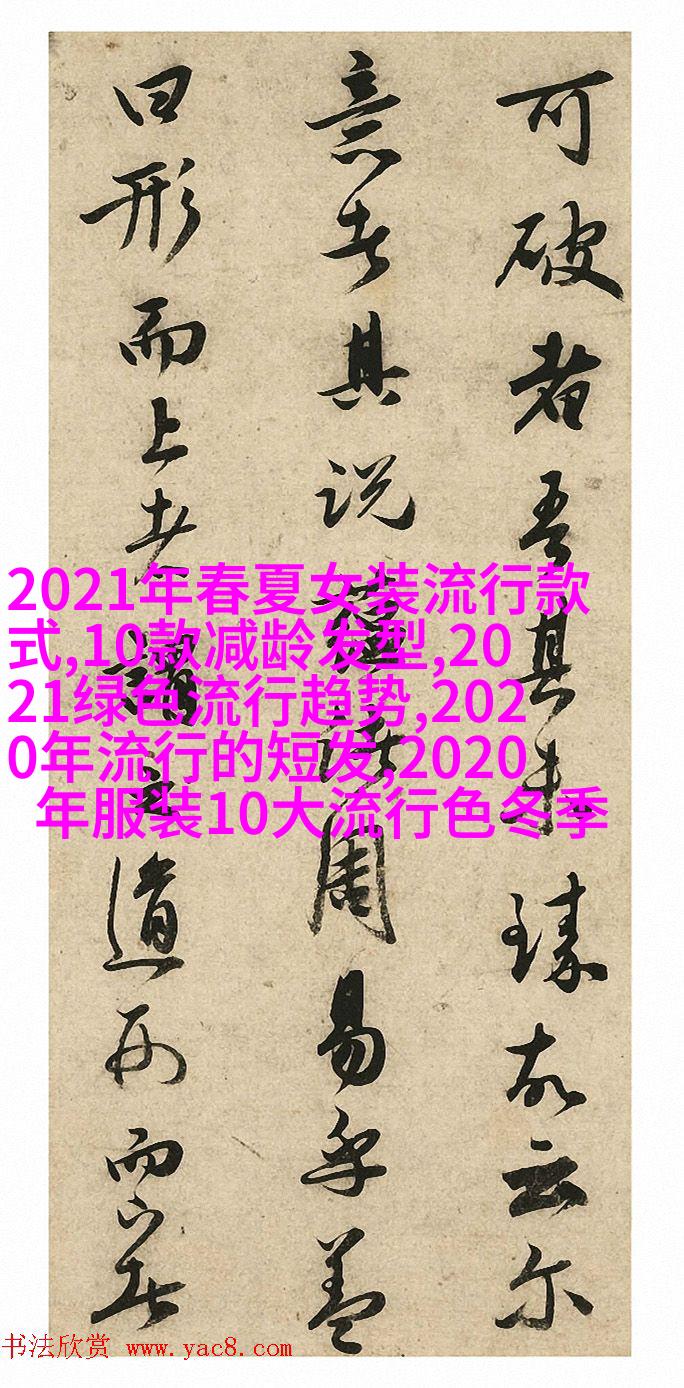 可破者吾其材臻故云尔
意者其说 周易乎盖
曰形而上者谓之道形而下者
2021年春夏女装流行款
式,10款减龄发型,20
21绿色流行趋势,202
0年流行的短发,2020
年服装10大流行色冬季
书法欣赏 www.yac8.com